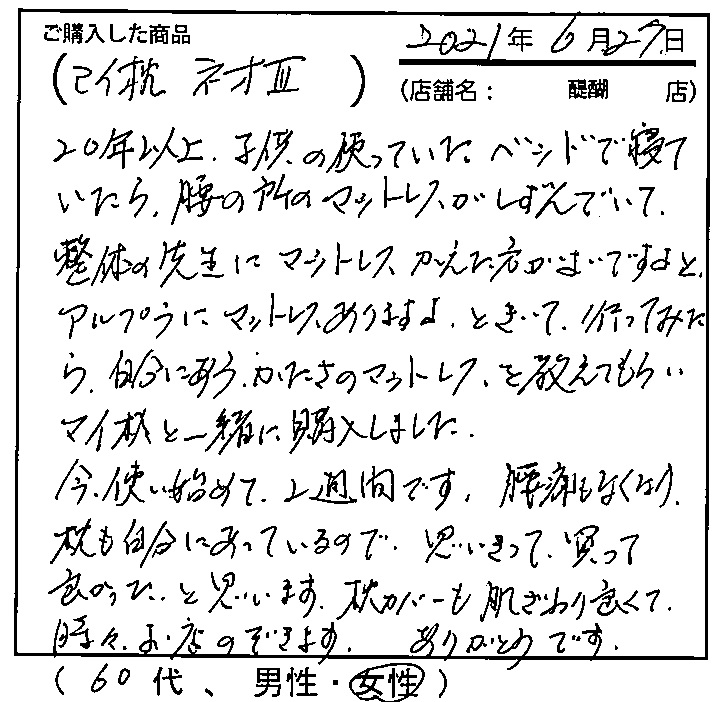 ご購入した商品
2021年 6月27日
(マイ枕 ネオⅢ )
(店舗名: 醍醐 店)
20年以上、子供の使っていたベンドで寝て
いたら、腰の所のマットレスがしずんでいて、
整体の先生にマットレスかえた方がよいですよと、
アルプラにマットレスありますよ、ときいて、行ってみた
ら、自分にあう、かたさのマットレス、を教えてもらい
マイ枕と一緒に購入しました。
今、使い始めて、2週間です。腰痛もなくなり、
枕も自分にあっているので、思いきって、買って
良かった、と思います。枕カバーも肌ざわり良くて、
時々、お店のぞきます。 ありがとうです。
(60代、男性・女性)